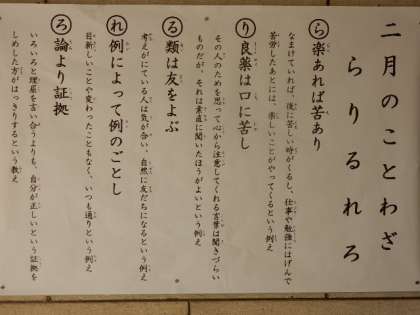 二月のことわざ
らりるれろ
ら 楽あれば苦あり
なまけていれば、後に苦しい時がくるし、仕事や勉強にはげんで
苦労したあとには、楽しいことがやってくるという例え
り 良薬は口に苦し
その人のためを思って心から注意してくれる言葉は聞きづらい
ものだが、それは素直に聞いたほうがよいという例え
る 類は友をよぶ
考えがにている人は気が合い、自然に友だちになるという例え
れ 例によって例のごとし
目新しいことや変わったこともなく、いつも通りという例え
ろ 論より証拠
いろいろと理屈を言い合うよりも、自分が正しいという証拠を
しめした方がはっきりするという教え